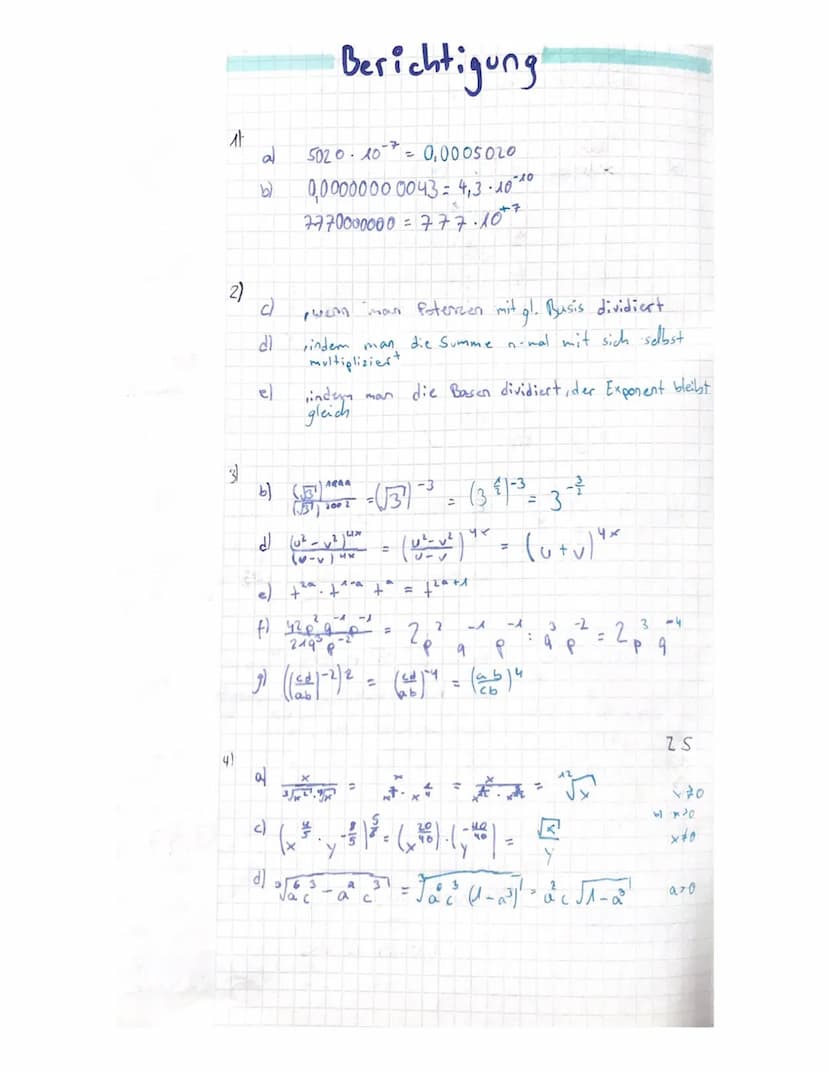 Berichtigung
1)
a) 5020 · 10⁻⁷ = 0,0005020
b) 0,0000000 0043 = 4,3 · 10⁻¹⁰
7770000000 = 777 · 10⁺⁷
2)
c) , wenn man Potenzen mit gl. Basis dividiert
d) , indem man die Summe n-mal mit sich selbst
multipliziert
e) , indem man die Basen dividiert, der Exponent bleibt
gleich
3)
b) (√3)¹⁹⁹⁹/(√3)²⁰⁰² = (√3)⁻³ = (3^(1/2))⁻³ = 3^(-3/2)
d) (u² - v²)^(4x)/(u - v)^(4x) = ((u² - v²)/(u - v))^(4x) = (u + v)^(4x)
e) t^(2a) · t^(1-a) t^a = t^(2a+1)
f) 42p² q⁻¹ p⁻¹/21q³ p⁻² = 2p² q⁻¹ p⁻¹ : q³ p⁻² = 2p³ q⁻⁴
g) ((cd/ab)⁻²)² = (cd/ab)⁻⁴ = (ab/cb)⁴
25
4)
a) = = = ¹²√x x≠0
c) = = √x/y x≠0
d) ³√(a⁶c³ - a⁹c³) = ³√(a⁶c³(1-a³)) = a²c √(1-a³) a>0